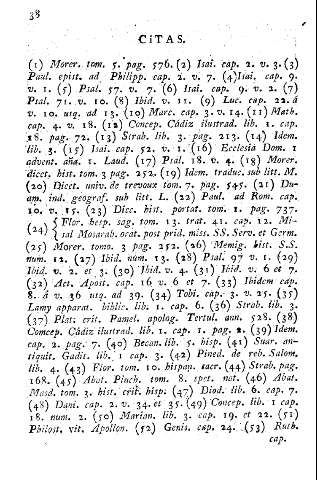 38
CITAS.
(1) Morer. tom. 5. pag. 576. (2) Isai. cap. 2. v. 3. (3)
Paul. epist. ad Philipp. cap. 2. v. 7. (4) Isai. cap. 9.
v. 1. (5) Psal. 57. v. 7. (6) Isai. cap. 9. v. 2. (7)
Psal. 71. v. 10. (8) Ibid. v. 11. (9) Luc. cap. 22. á
v. 10. usq. ad 13. (10) Marc. cap. 3. v. 14. (11) Math.
cap. 4. v. 18. (12) Concep. Cádiz ilustrad. lib. 1. cap.
18. pag. 72. (13) Strab. lib. 3. pag. 213. (14) Idem.
lib. 3. (15) Isai. cap. 52. v. 1. (16) Ecclesia Dom. 1
advent. aña. 1. Laud. (17) Psal. 18. v. 4. (18) Morer.
dicct. hist. tom. 3 pag. 252. (19) Idem. traduc. sub litt. M.
(20) Dicct. univ. de trevoux tom. 7. pag. 545. (21) Du-
am. ind. geograf. sub litt. L. (22) Paul. ad Rom. cap.
10. v. 15. (23) Dicc. hist. portat. tom. 1. pag. 737.
(24) { Flor. hesp. sag. tom. 13. trat. 41. cap. 12. Mi-
sal Mosarab. orat. post prid. miss. SS. Serv. et Germ.
(25) Morer. tomo. 3 pag. 252. (26) Memig. hist. S.S.
num. 12. (27) Ibid. núm. 13. (28) Psal. 97 v. 1. (29)
Ibid. v. 2. et 3. (30) Ibid. v. 4. (31) Ibid. v. 6 et 7.
(32) Act. Apost. cap. 16 v. 6 et 7. (33) Ibidem cap.
8. á v. 36 usq. ad 39. (34) Tobi. cap. 3. v. 25. (35)
Lamy apparat. biblic. lib. 1. cap. 6. (36) Strab. lib. 3.
(37) Plat. crit. Pamel. apolog. Tertul. ann. 528. (38)
Concep. Cádiz ilustrad. lib. 1. cap. 1. pag. 2. (39) Idem.
cap. 2. pag. 7. (40) Becan. lib. 5. hisp. (41) Suar. an-
tiquit. Gadis. lib. 1 cap. 3. (42) Pined. de reb. Salom.
lib. 4. (43) Flor. tom. 10. hispan. sacr. (44) Strab. pag.
168. (45) Abat. Pluch. tom. 8. spet. nat. (46) Abat.
Masd. tom. 3. hist. crit. hisp. (47) Diod. lib. 6. cap. 7.
(48) Dani. cap. 2. v. 34. et 35. (49) Concep. lib. 1 cap.
18. num. 2. (50) Marian. lib. 3. cap. 19. et 22. (51)
Philost. vit. Apollon. (52) Genis. cap. 24. (53) Ruth.
cap.